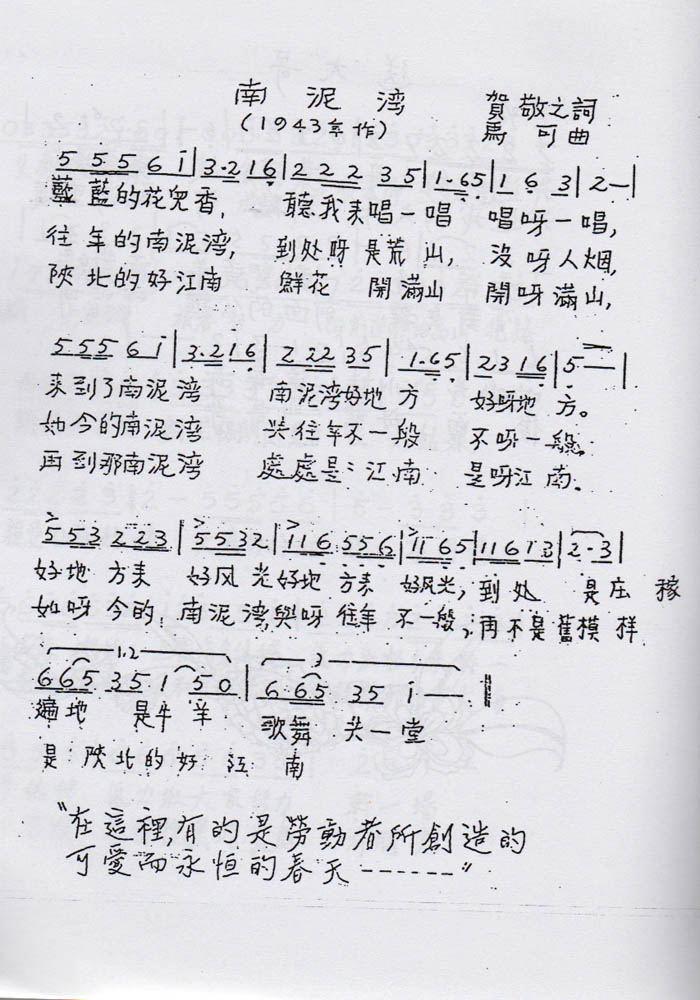 南泥湾
(1943年作)
賀敬之詞
馬可曲
5 5 5 6 i | 3·2 1 6 | 2 2 2 3 5 | 1·6 5 | 1 6 3 | 2 — |
藍藍的花兒香, 聽我来唱一唱 唱呀一唱,
往年的南泥湾, 到处呀是荒山, 沒呀人烟,
陝北的好江南 鮮花開滿山 開呀滿山,
5 5 5 6 i | 3·2 1 6 | 2 2 2 3 5 | 1·6 5 | 2 3 1 6 | 5 — |
来到了南泥湾 南泥湾好地方 好呀地方。
如今的南泥湾 与往年不一般 不呀一般。
再到那南泥湾 處處是:江南 是呀江南。
5 5 3 2 2 3 | 5 5 3 2 | 1 1 6 5 5 6 | 1 1 6 5 | 1 1 6 1 3 | 2·3 |
好地方来 好风光好地方来 好风光, 到处 是庄稼
如呀今的, 南泥湾, 與呀往年 不一般, 再不是舊模样
1.2 3
6 6 5 3 5 1 5 0 | 6 6 5 3 5 i — ||
遍地 是牛羊 歌舞 共一堂
是 陝北的好江南
"在這裡,有的是勞動者所創造的
可愛而永恒的春天------"